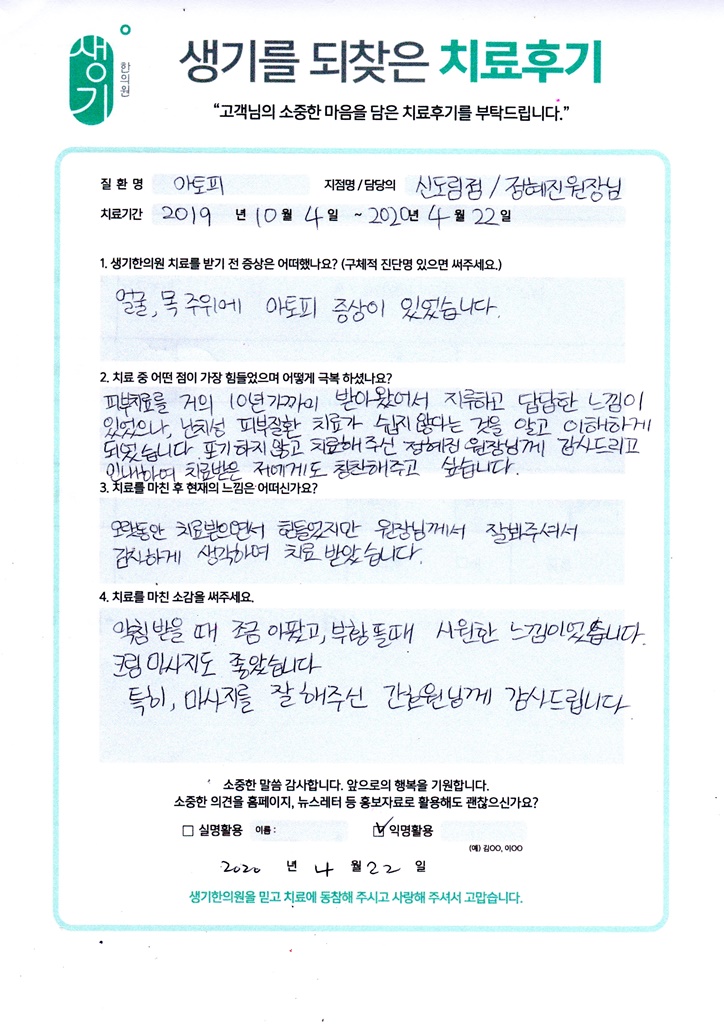 생기
한의원
생기를 되찾은 치료후기
“고객님의 소중한 마음을 담은 치료후기를 부탁드립니다.”
질 환 명 아토피 지점명 / 담당의 신도림점 / 정혜진 원장님
치료기간 2019 년 10 월 4 일 ~ 2020 년 4 월 22 일
1. 생기한의원 치료를 받기 전 증상은 어떠했나요? (구체적 진단명 있으면 써주세요.)
얼굴, 목 주위에 아토피 증상이 있었습니다.
2. 치료 중 어떤 점이 가장 힘들었으며 어떻게 극복 하셨나요?
피부치료를 거의 10년 가까이 받아왔어서 지루하고 답답한 느낌이
있었으나, 난치성 피부질환 치료가 쉽지 않다는 것을 알고 이해하게
되었습니다. 포기하지 않고 치료해 주신 정혜진 원장님께 감사드리고
인내하며 치료받은 저에게도 칭찬해주고 싶습니다.
3. 치료를 마친 후 현재의 느낌은 어떠신가요?
오랫동안 치료받으면서 힘들었지만 원장님께서 잘봐주셔서
감사하게 생각하며 치료 받았습니다.
4. 치료를 마친 소감을 써주세요.
약침 받을 때 조금 아팠고, 부항 뜰때 시원한 느낌이었습니다.
크림 마사지도 좋았습니다
특히, 마사지를 잘 해주신 간호원님께 감사드립니다
소중한 말씀 감사합니다. 앞으로의 행복을 기원합니다.
소중한 의견을 홈페이지, 뉴스레터 등 홍보자료로 활용해도 괜찮으신가요?
□ 실명활용 이름 : ☑ 익명활용
(예) 김OO, 이OO
2020 년 4 월 22 일
생기한의원을 믿고 치료에 동참해 주시고 사랑해 주셔서 고맙습니다.